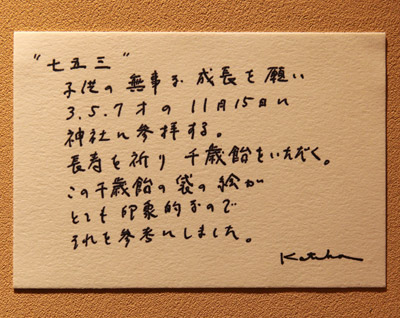 "七五三"
子供の無事な成長を願い
3.5.7才の11月15日に
神社に参拝する。
長寿を祈り千歳飴をいただく。
この千歳飴の袋の絵が
とても印象的なので
それを参考にしました。